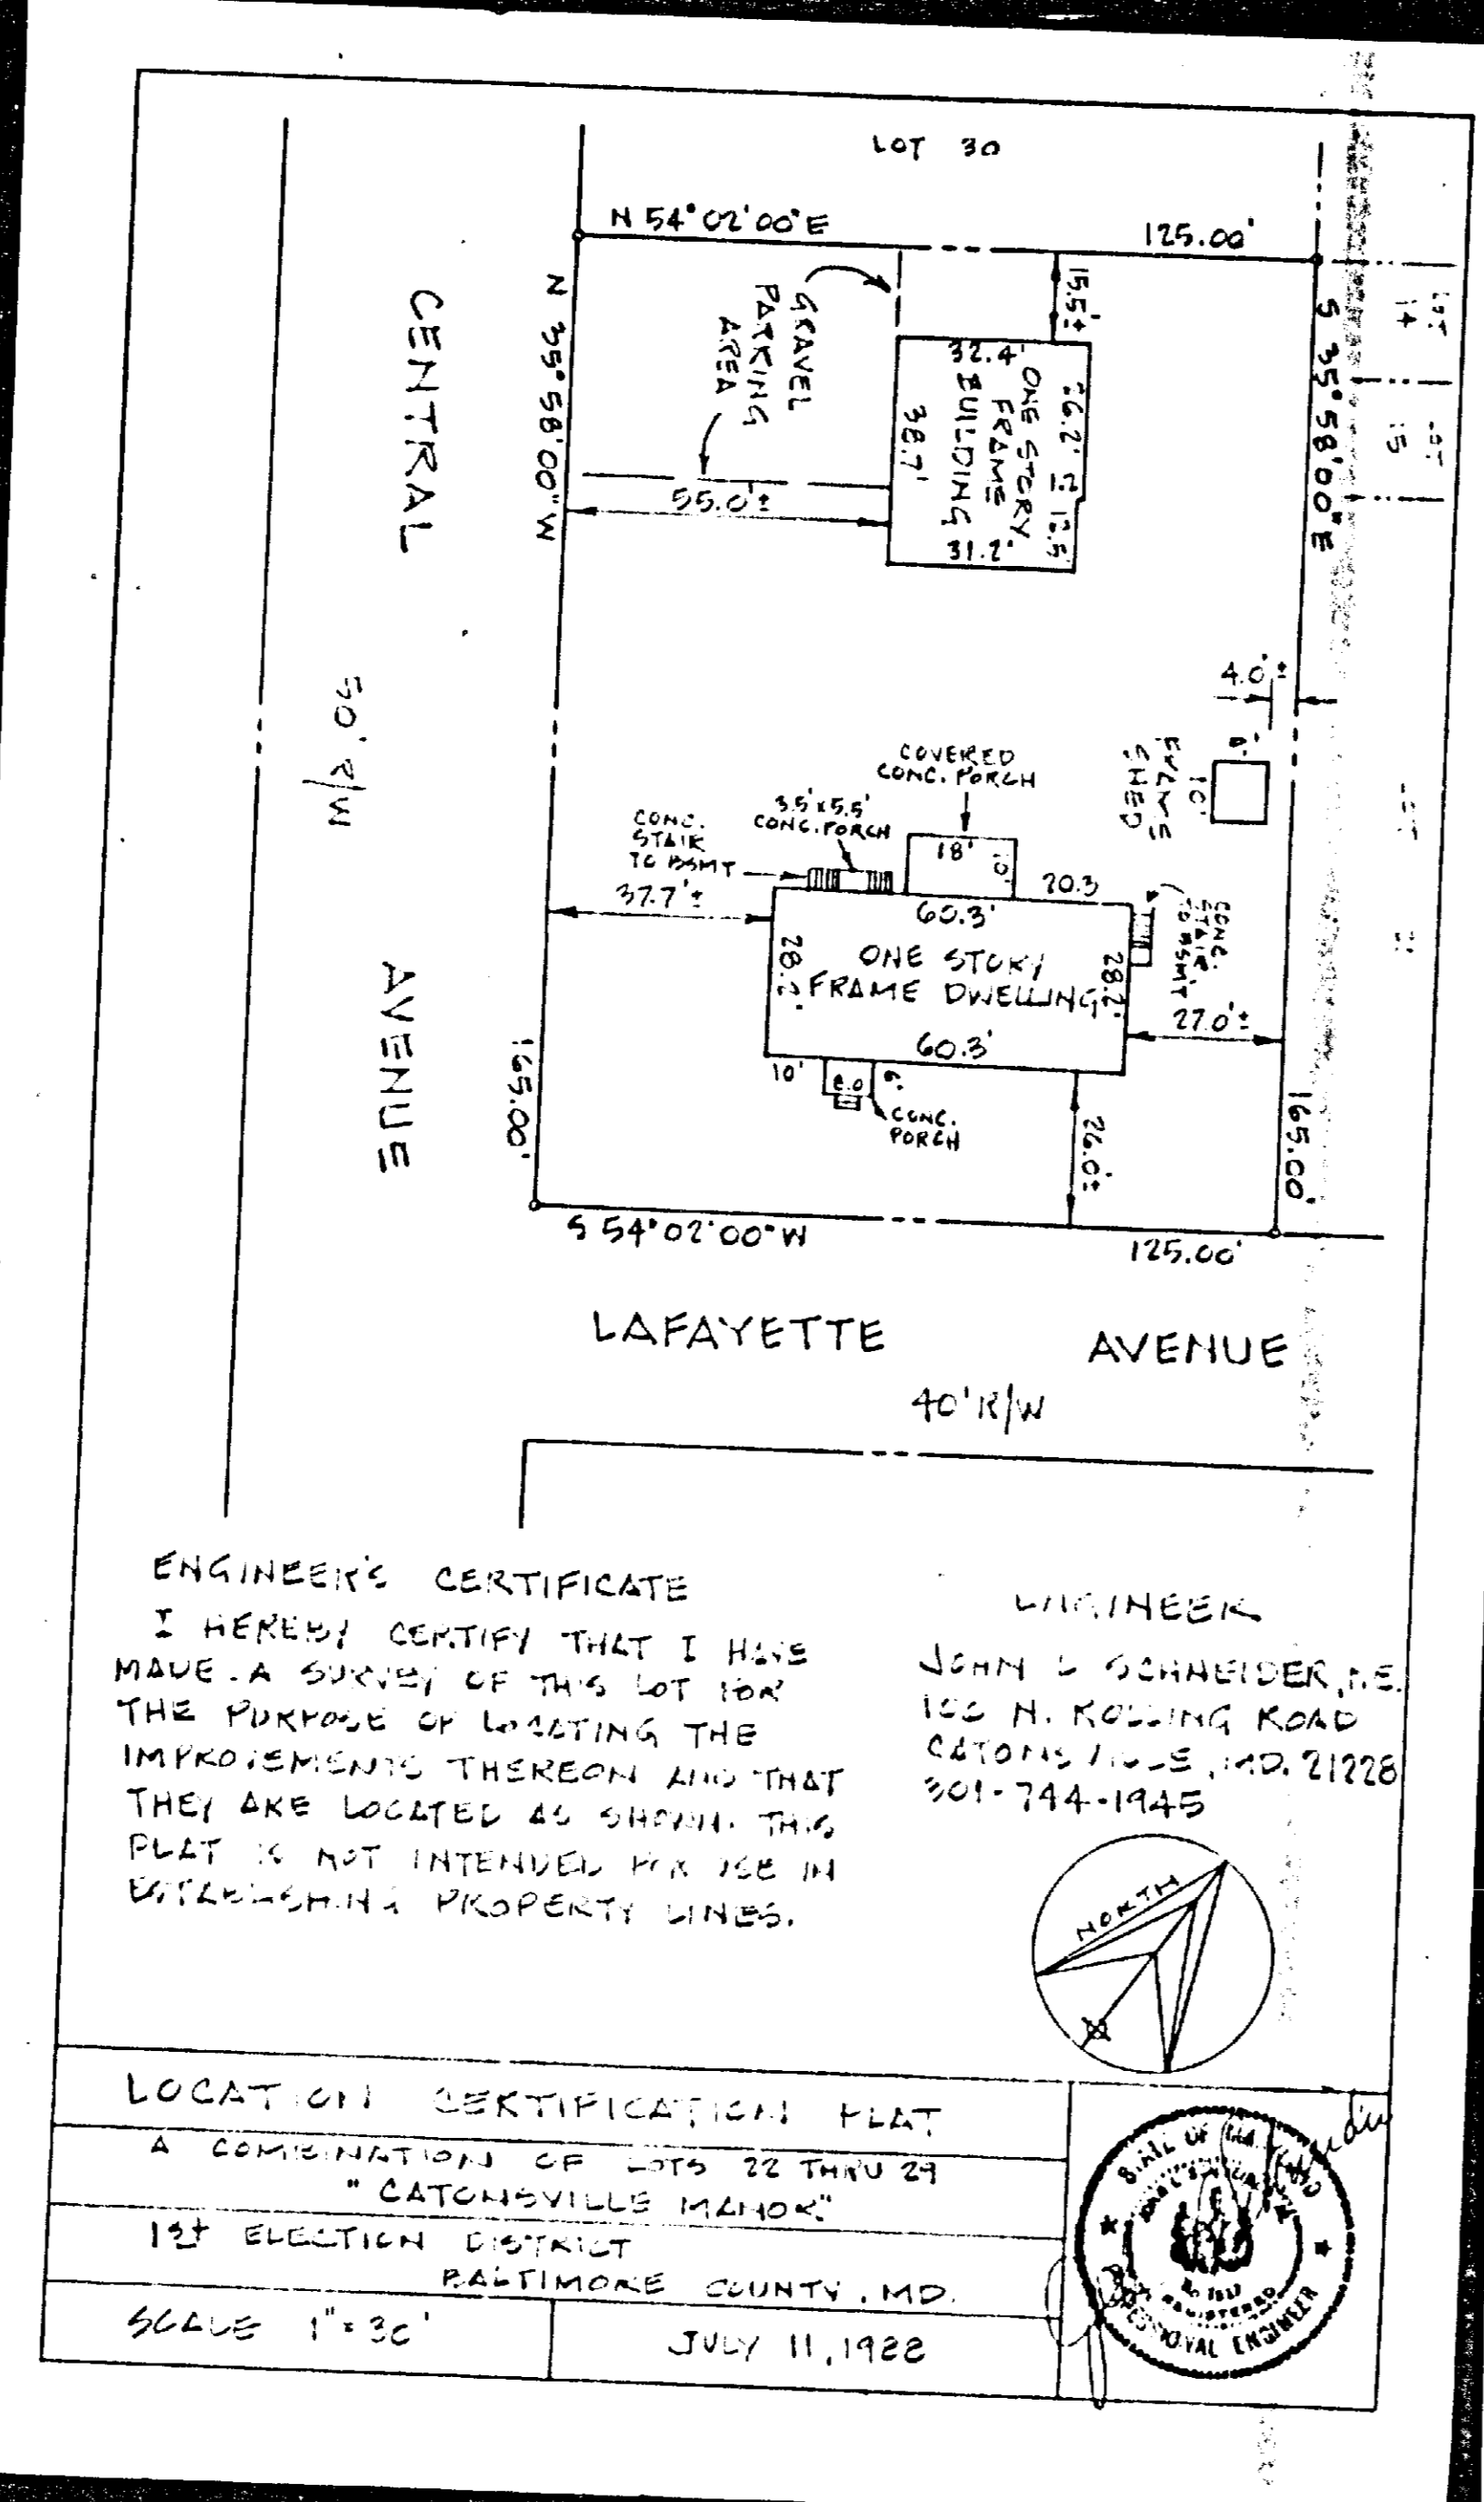 LOT 30
N 54°02'00"E
125.00'
LOT
14
LOT
15
S 35°58'00"E
N 35°58'00"W
GRAVEL
PARKING
AREA
15.5'±
32.4'
26.2'
12.5
ONE STORY
FRAME
BUILDING
38.7'
31.2'
55.0'±
CENTRAL
AVENUE
50' R/W
4.0'±
10'
FRAME
SHED
COVERED
CONC. PORCH
3.5'x5.5'
CONC. PORCH
CONC.
STAIR
TO BSMT
18'
10'
20.3
37.7'±
60.3'
28.2'
ONE STORY
FRAME DWELLING
28.2'
60.3'
CONC.
STAIR
TO BSMT
27.0'±
10'
6'
CONC.
PORCH
26.0'±
165.00'
165.00'
S 54°02'00"W
125.00'
LAFAYETTE AVENUE
40' R/W
ENGINEER'S CERTIFICATE
I HEREBY CERTIFY THAT I HAVE
MADE A SURVEY OF THIS LOT FOR
THE PURPOSE OF LOCATING THE
IMPROVEMENTS THEREON AND THAT
THEY ARE LOCATED AS SHOWN. THIS
PLAT IS NOT INTENDED FOR USE IN
ESTABLISHING PROPERTY LINES.
ENGINEER
JOHN L SCHNEIDER, P.E.
N. ROLLING ROAD
CATONSVILLE, MD. 21228
301-744-1945
NORTH
LOCATION CERTIFICATION PLAT
A COMBINATION OF LOTS 22 THRU 29
"CATONSVILLE MANOR"
1st ELECTION DISTRICT
BALTIMORE COUNTY, MD.
SCALE 1"=30'
JULY 11, 1988
REGISTERED
PROFESSIONAL ENGINEER